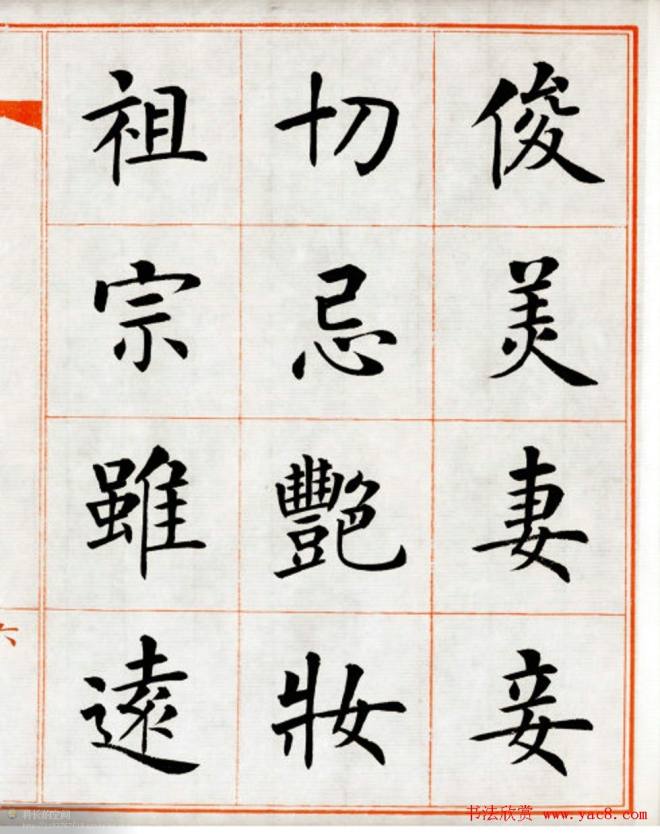 俊美妻妾
切忌艷妝
祖宗雖遠
六
书法欣赏 www.yac8.com